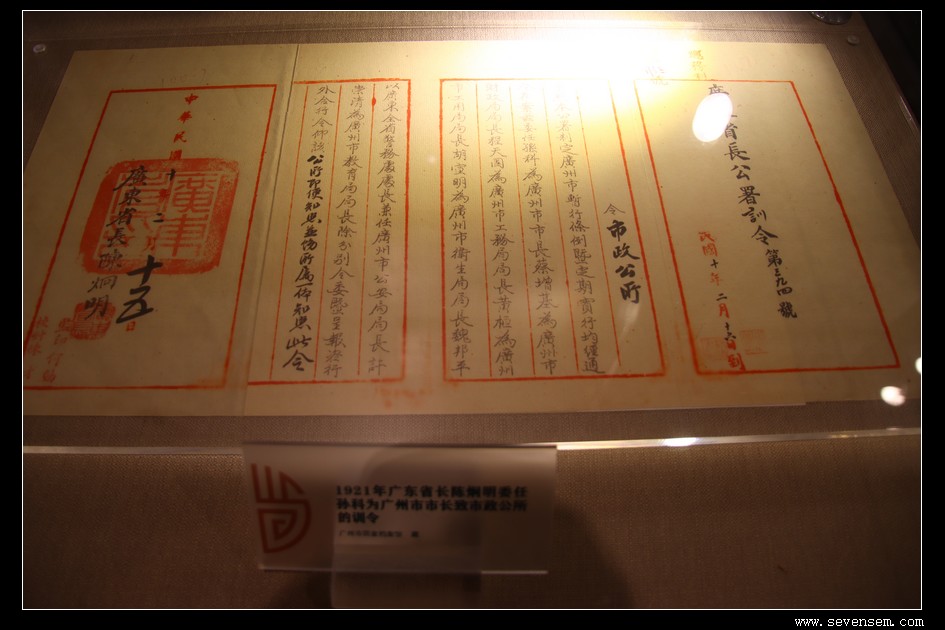 省長公署訓令第三九四號
民國十年二月十六日到
令市政公所
制定廣州市暫行條例暨定期實行均經通
委任孫科為廣州市市長蔡增基為廣州市
局長程天固為廣州市工務局局長黃桓為廣州
用局局長胡宣明為廣州市衛生局局長魏邦平
以廣東全省警務處處長兼任廣州市公安局局長許
崇清為廣州市教育局局長除分別令委暨呈報咨行
外合行令仰該公所即便知照並飭所屬一體知照此令
中華民國十年二
十五日
廣東省長陳炯明
1921年广东省长陈炯明委任
孙科为广州市市长致市政公所
的训令
广州市国家档案馆 藏
www.sevensem.com